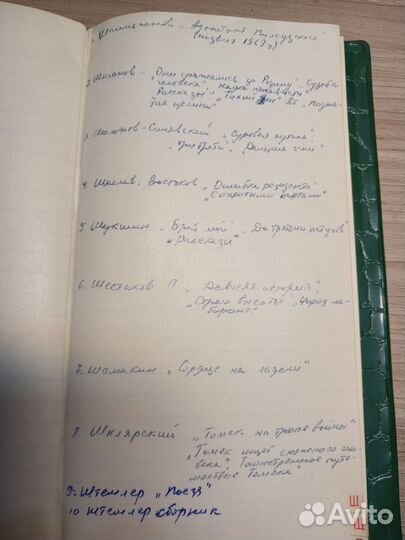 1. Шаимагонов - Адъютант Пилсудского"
(подвиг 1969г)
2. Шолохов - "Они сражались за Родину", "Судьба
человека", Наука ненависти",
"Рассказы", "Тихий Дон" 2т, Подня-
тая целина"
3. Шамякин-Синявский "Суровая купина"
"При Пяти", "Далекие огни"
4. Шмелев, Востоков "Ошибка резидента"
"С открытыми картами"
5. Шукшин "Брат мой", "До третих петухов"
"Рассказы
6. Шестаков П. "Давняя история",
"Страх высоты", "Через ла-
биринт"
7. Шамякин "Сердце на ладони"
8. Шклярский "Томек на тропе войны"
"Томек ищет снежного чело-
века", Таинственное путе-
шествие Томека"
9. Штемлер "Поезд"
10 Штемлер сборник
Ш
Avito